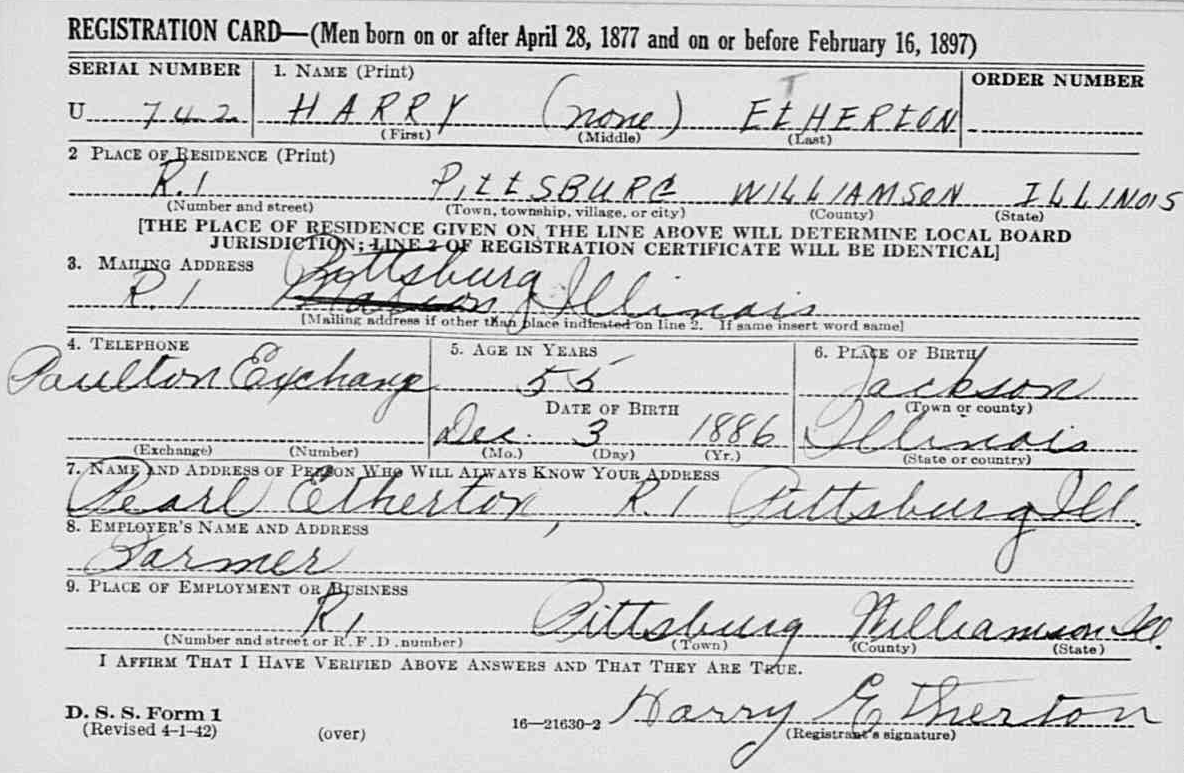 REGISTRATION CARD—(Men born on or after April 28, 1877 and on or before February 16, 1897)
SERIAL NUMBER 1. NAME (Print) ORDER NUMBER
U 742 HARRY (none) EtHERtON
(First) (Middle) (Last)
2 PLACE OF RESIDENCE (Print)
R.1 PittSBURG WILLIAMSON ILLINOIS
(Number and street) (Town, township, village, or city) (County) (State)
[THE PLACE OF RESIDENCE GIVEN ON THE LINE ABOVE WILL DETERMINE LOCAL BOARD
JURISDICTION; LINE 2 OF REGISTRATION CERTIFICATE WILL BE IDENTICAL]
3. MAILING ADDRESS Pittsburg
R 1 Illinois
[Mailing address if other than place indicated on line 2. If same insert word same]
4. TELEPHONE 5. AGE IN YEARS 6. PLACE OF BIRTH
Paulton Exchang 55 Jackson
DATE OF BIRTH (Town or county)
Dec. 3 1886 Illinois
(Exchange) (Number) (Mo.) (Day) (Yr.) (State or country)
7. NAME AND ADDRESS OF PERSON WHO WILL ALWAYS KNOW YOUR ADDRESS
Pearl Etherton, R.1 Pittsburg Ill.
8. EMPLOYER'S NAME AND ADDRESS
Farmer
9. PLACE OF EMPLOYMENT OR BUSINESS
R1 Pittsburg Williamson Ill.
(Number and street or R. F. D. number) (Town) (County) (State)
I AFFIRM THAT I HAVE VERIFIED ABOVE ANSWERS AND THAT THEY ARE TRUE.
Harry Etherton
D. S. S. Form 1
(Revised 4-1-42) (over) 16—21630-2 (Registrant's signature)